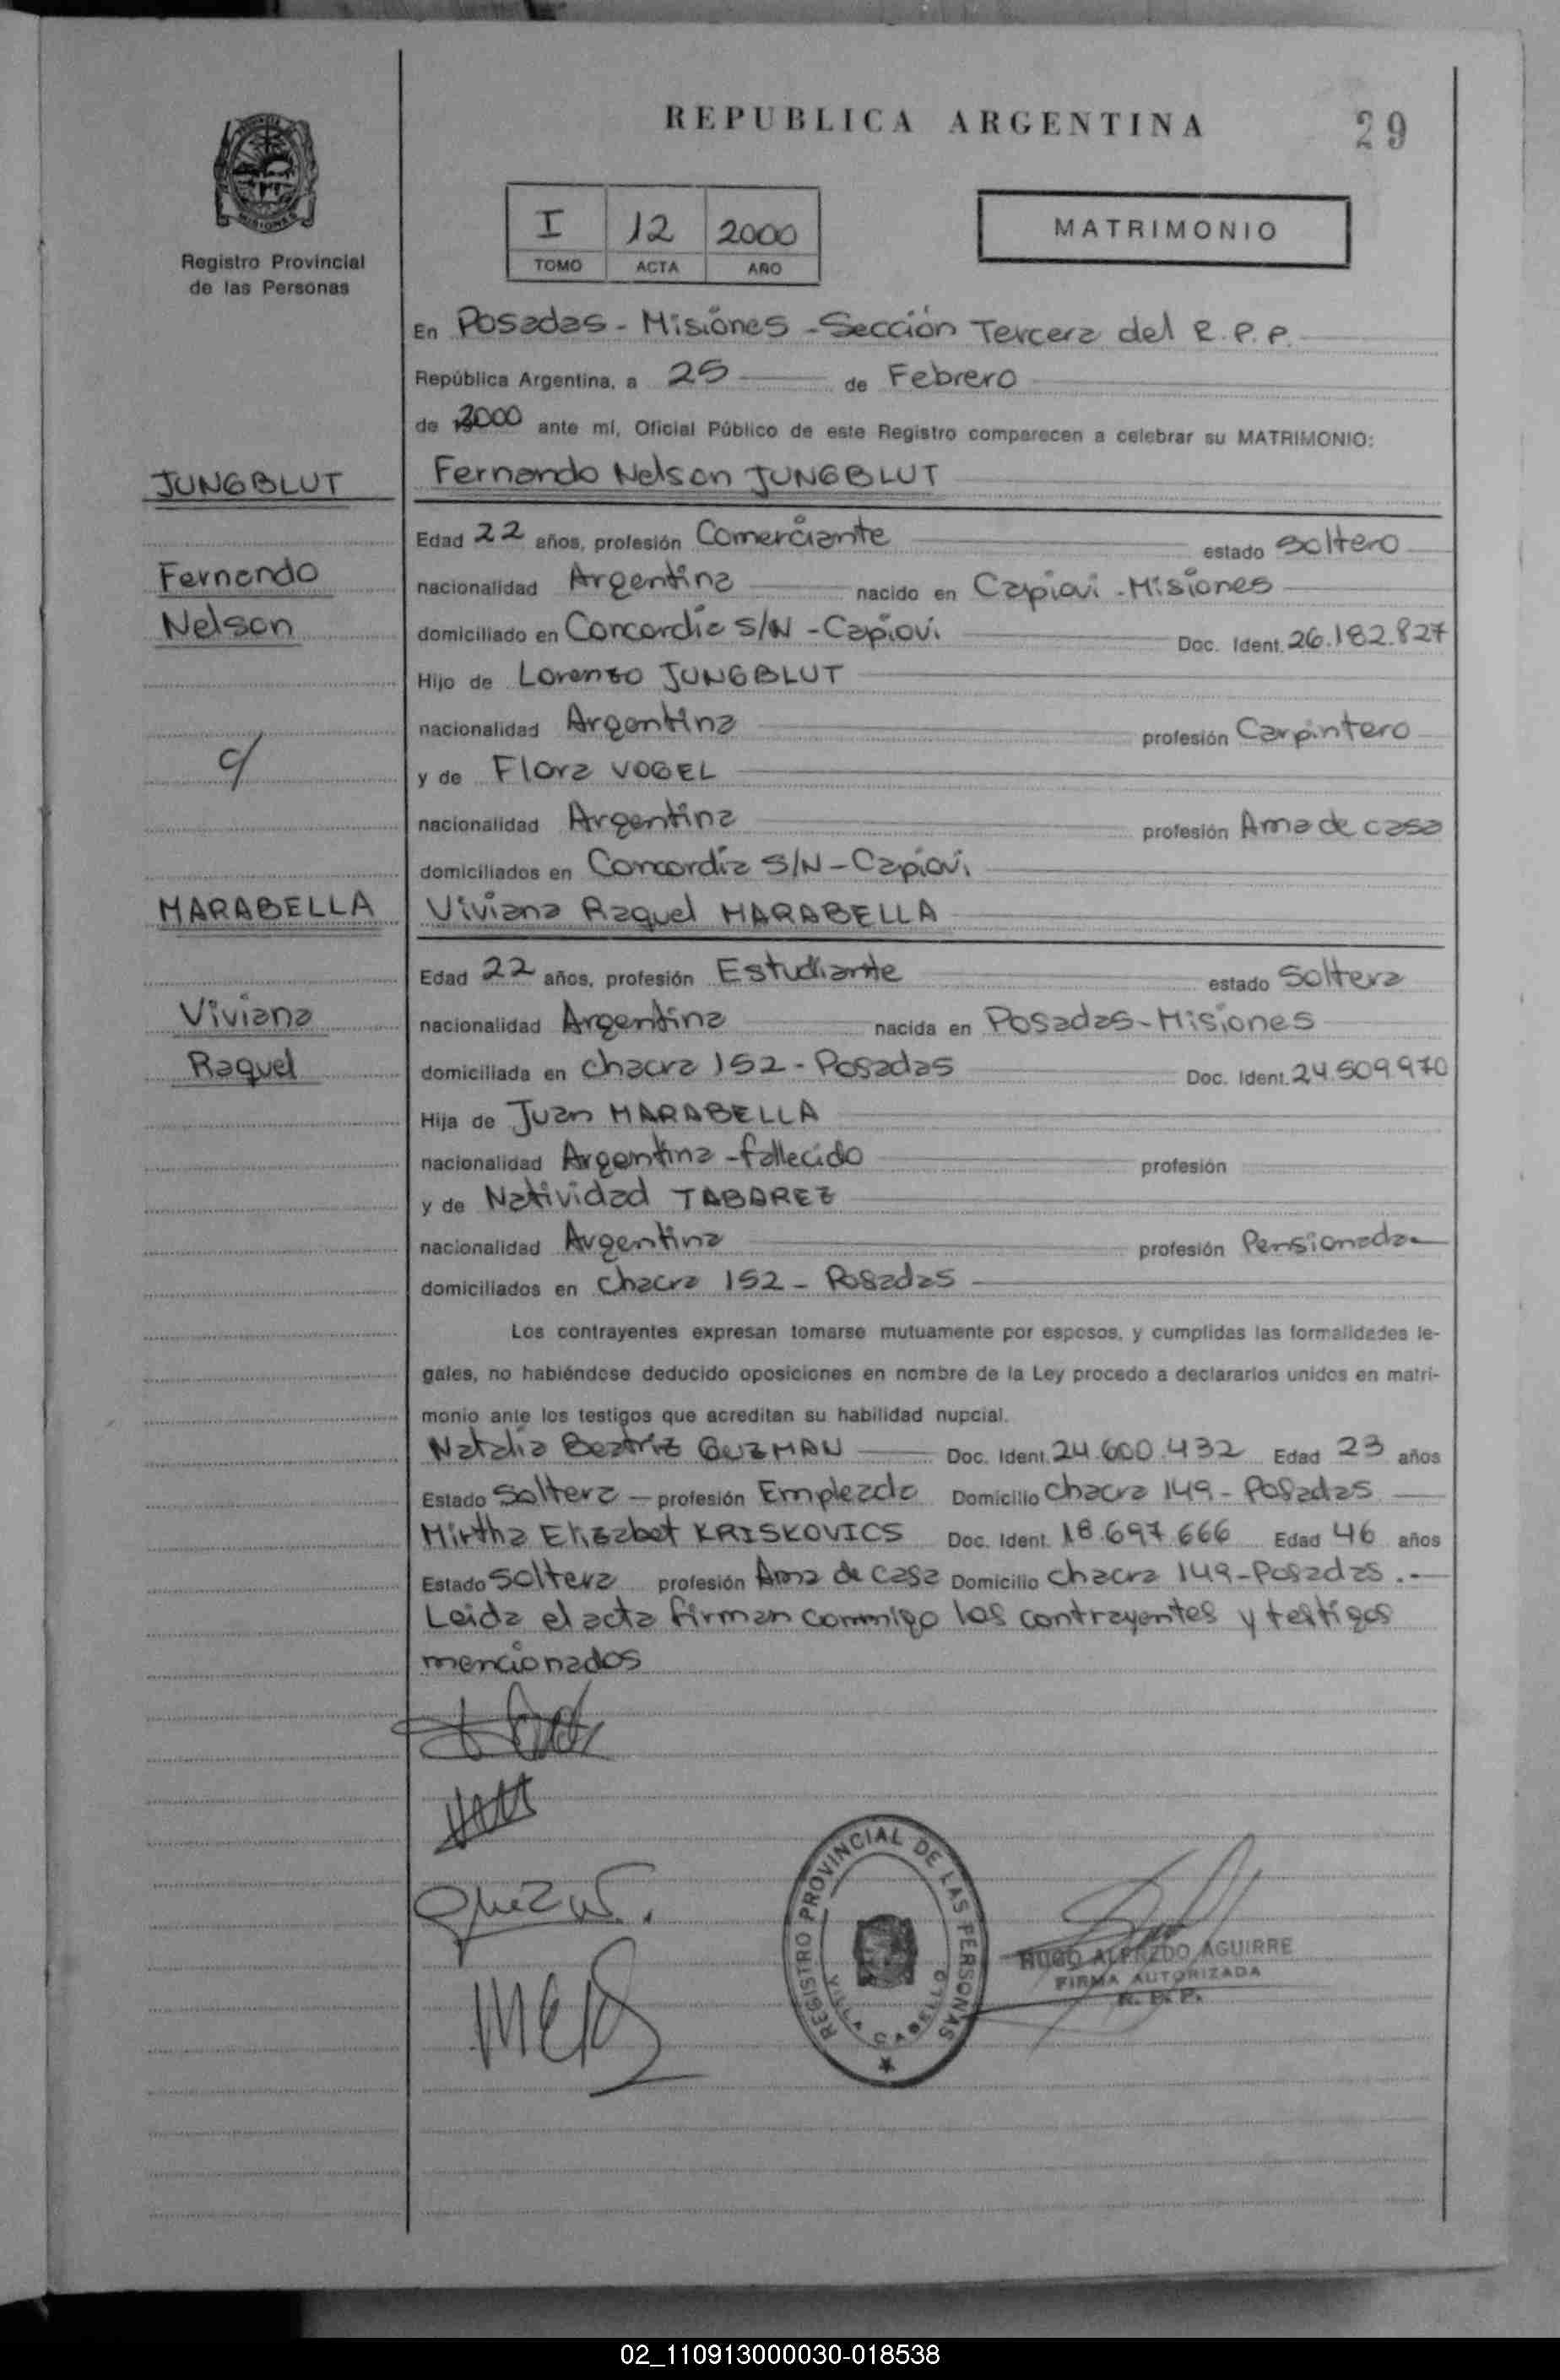 REPUBLICA ARGENTINA
29
I 12 2000
TOMO ACTA AÑO
MATRIMONIO
MISIONES
Registro Provincial
de las Personas
En Posadas - Misiones - Sección Tercera del R.P.P.
República Argentina, a 25 de Febrero
de 2000 ante mí, Oficial Público de este Registro comparecen a celebrar su MATRIMONIO:
JUNGBLUT
Fernando Nelson JUNGBLUT
Edad 22 años, profesión Comerciante estado Soltero
Fernando
nacionalidad Argentina nacido en Capiovi - Misiones
Nelson
domiciliado en Concordia S/N - Capiovi Doc. Ident. 26.182.827
Hijo de Lorenzo JUNGBLUT
nacionalidad Argentina profesión Carpintero
c/
y de Flora VOGEL
nacionalidad Argentina profesión Ama de casa
domiciliados en Concordia S/N - Capiovi
MARABELLA
Viviana Raquel MARABELLA
Edad 22 años, profesión Estudiante estado Soltera
Viviana
nacionalidad Argentina nacida en Posadas - Misiones
Raquel
domiciliada en Chacra 152 - Posadas Doc. Ident. 24.509.970
Hija de Juan MARABELLA
nacionalidad Argentina - fallecido profesión
y de Natividad TABAREZ
nacionalidad Argentina profesión Pensionada
domiciliados en Chacra 152 - Posadas
Los contrayentes expresan tomarse mutuamente por esposos, y cumplidas las formalidades le-
gales, no habiéndose deducido oposiciones en nombre de la Ley procedo a declararlos unidos en matri-
monio ante los testigos que acreditan su habilidad nupcial.
Natalia Beatriz GUZMAN Doc. Ident. 24.600.432 Edad 23 años
Estado Soltera - profesión Empleada Domicilio Chacra 149 - Posadas
Mirtha Elizabet KRISKOVICS Doc. Ident. 18.697.666 Edad 46 años
Estado Soltera profesión Ama de casa Domicilio Chacra 149 - Posadas.-
Leida el acta firman conmigo los contrayentes y testigos
mencionados
REGISTRO PROVINCIAL DE LAS PERSONAS
VILLA CABELLO
HUGO ALFREDO AGUIRRE
FIRMA AUTORIZADA
R. P. P.
02_110913000030-018538